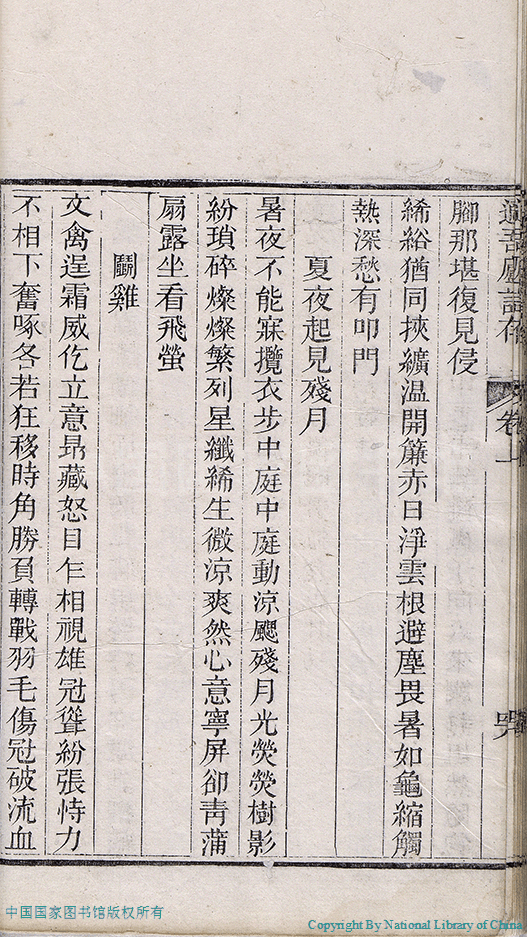 適吾廬詩存 卷上
腳那堪復見侵
絺綌猶同挾纊温開簾赤日淨雲根避塵畏暑如龜縮觸
熱深愁有叩門
夏夜起見殘月
暑夜不能寐攬衣步中庭中庭動涼颸殘月光熒熒樹影
紛瑣碎燦燦繁列星纖絺生微涼爽然心意寧屏卻青蒲
扇露坐看飛螢
鬭雞
文禽逞霜威仡立意昂藏怒目乍相視雄冠聳紛張恃力
不相下奮啄各若狂移時角勝負轉戰羽毛傷冠破流血
中国国家图书馆版权所有
Copyright By National Library of China